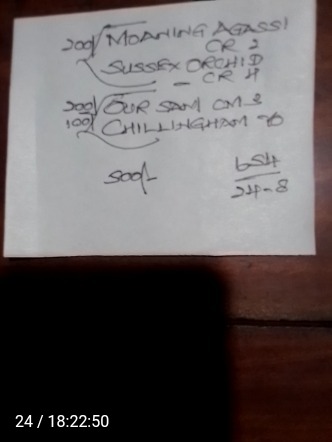 200/ MOANING AGASSI
CR 2
SUSSEX ORCHID
- CR 4
200/ OUR SAM CM 3
100/ CHILLINGHAM
500/-
654
24-8
24 / 18:22:50